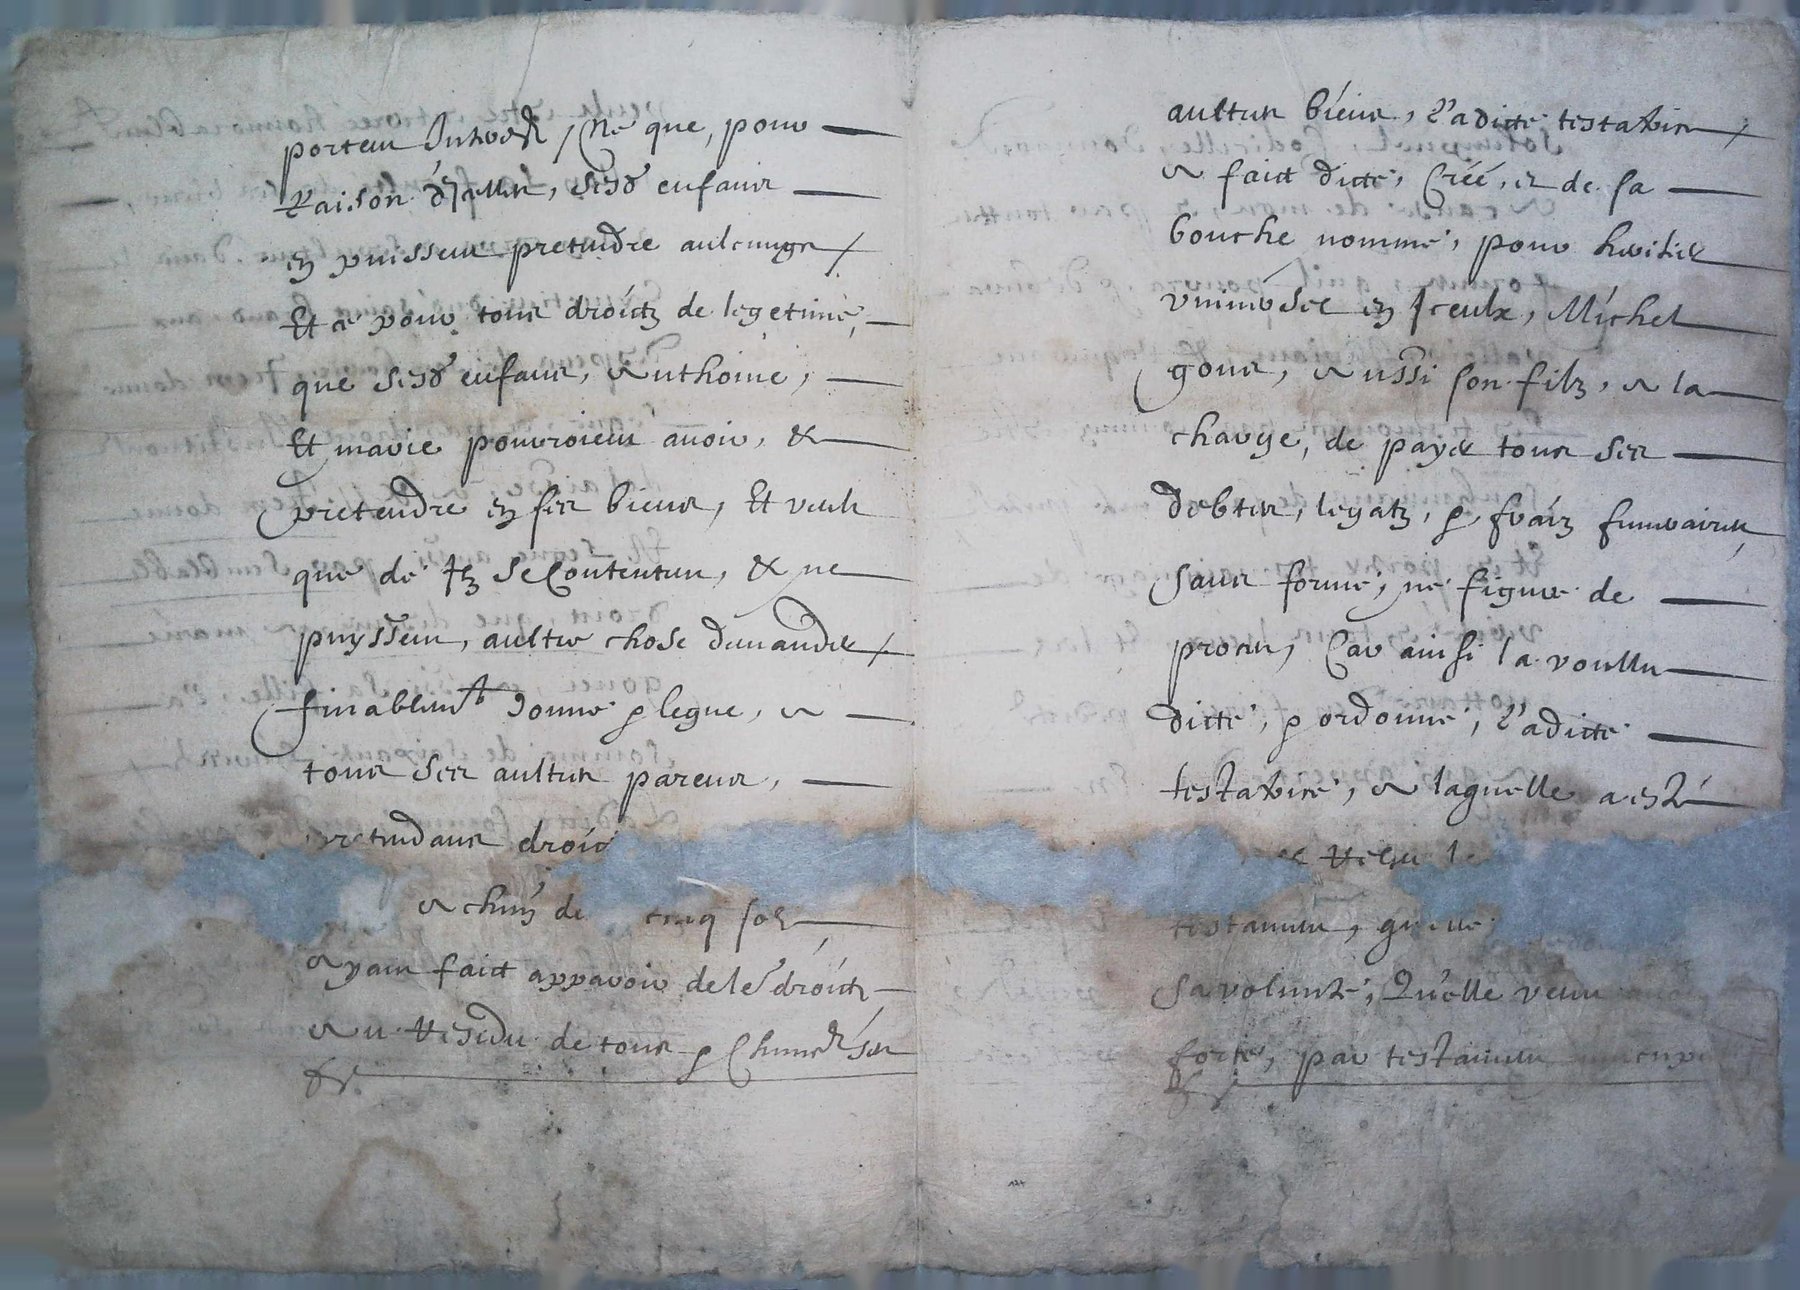 porteur Interestz, Ne que, pour
Raison d'Icelles, sesd enfans
en puissent pretendre aulcunge
Et ce pour tous droictz de legetime,
que sesd enfans, Anthoine,
Et marie pourroient avoir, &
pretendre en ses biens, Et veult
que de ce se Contentent, & ne
puyssent, aultre chose demander
finablemt donne & legue, A
tous ses aultres parens,
pretendans droict
A chun de cinq solz
Ayant faict apparoir de leurs droictz
Au Residu de tous & Chuns ses
aultres biens, Ladicte testatrice
A faict dicte, Créé, et de sa
bouche nommé, pour heritier
universel en Iceulx, Michel
gour, Aussi son filz, A la
charge, de payer tous ses
debtes, legatz, & fraiz funeraires
sans forme, ne figure de
proces, Car ainsi la voullu
dicte, & ordonne, Ladicte
testatrice, A laquelle a esté
testament,
sa volunté, Qu'elle veult
forte, par testament